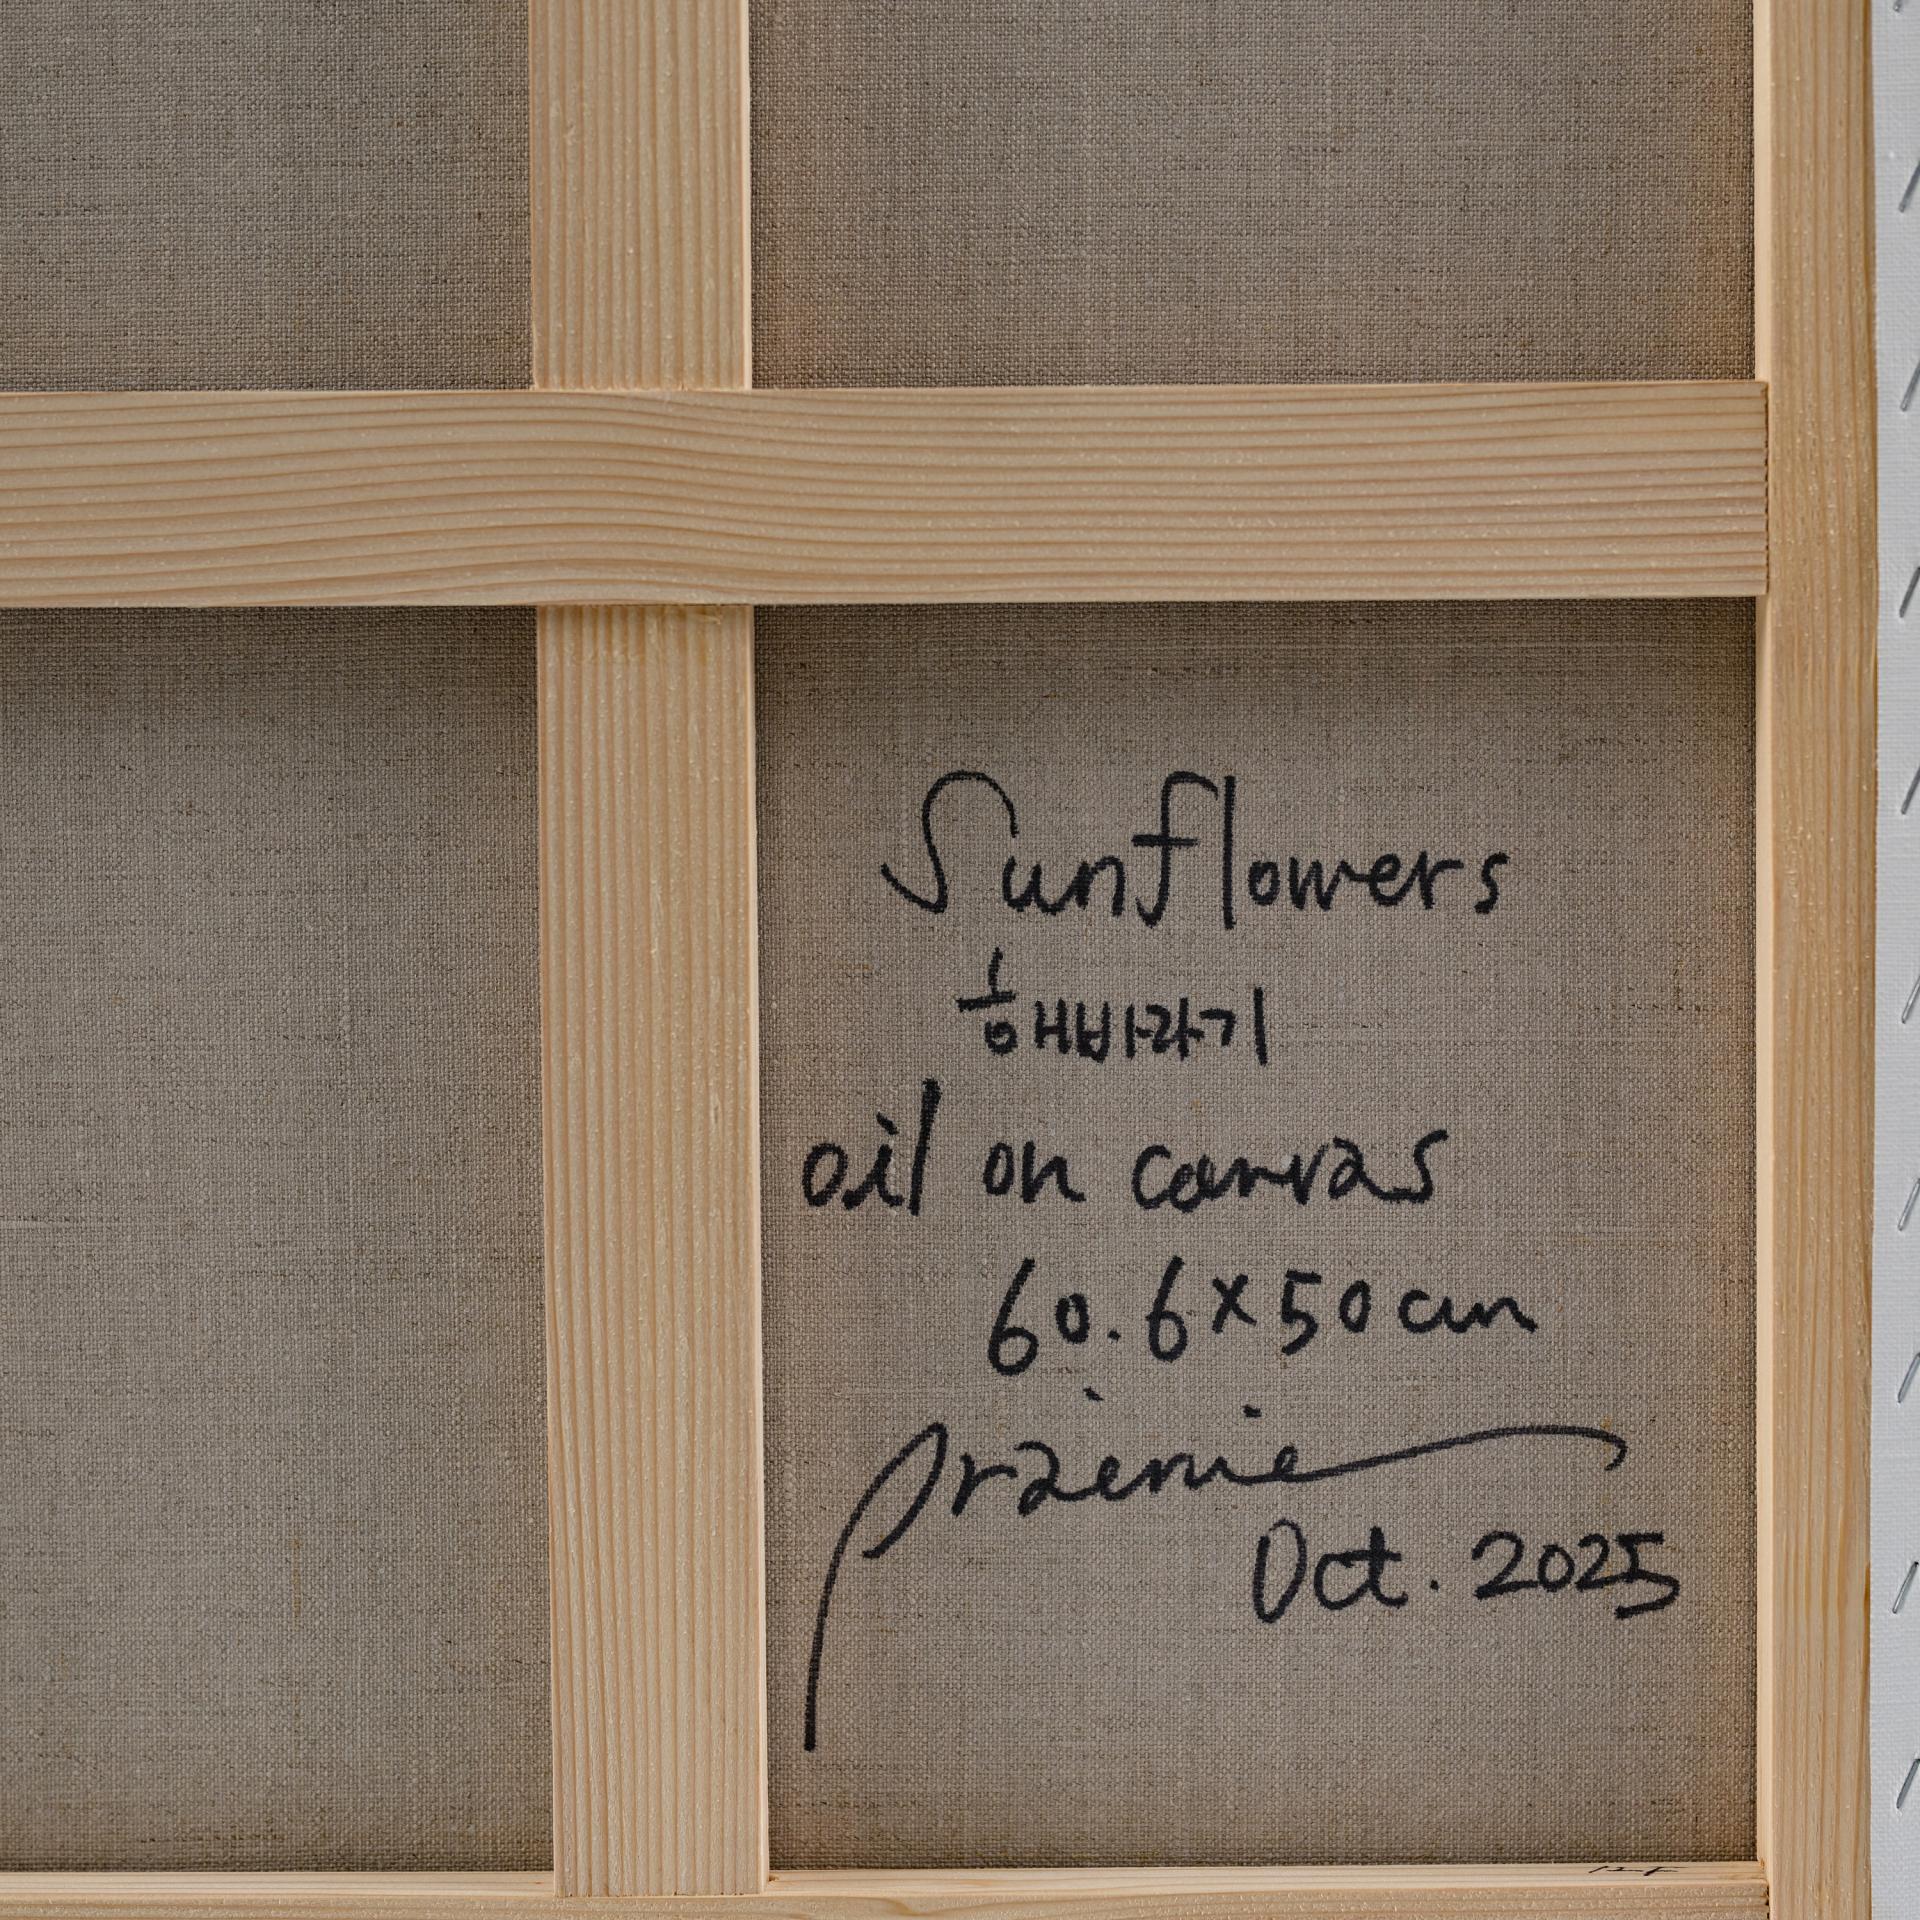 Sunflowers
해바라기
oil on canvas
60.6 x 50 cm
Oct. 2025